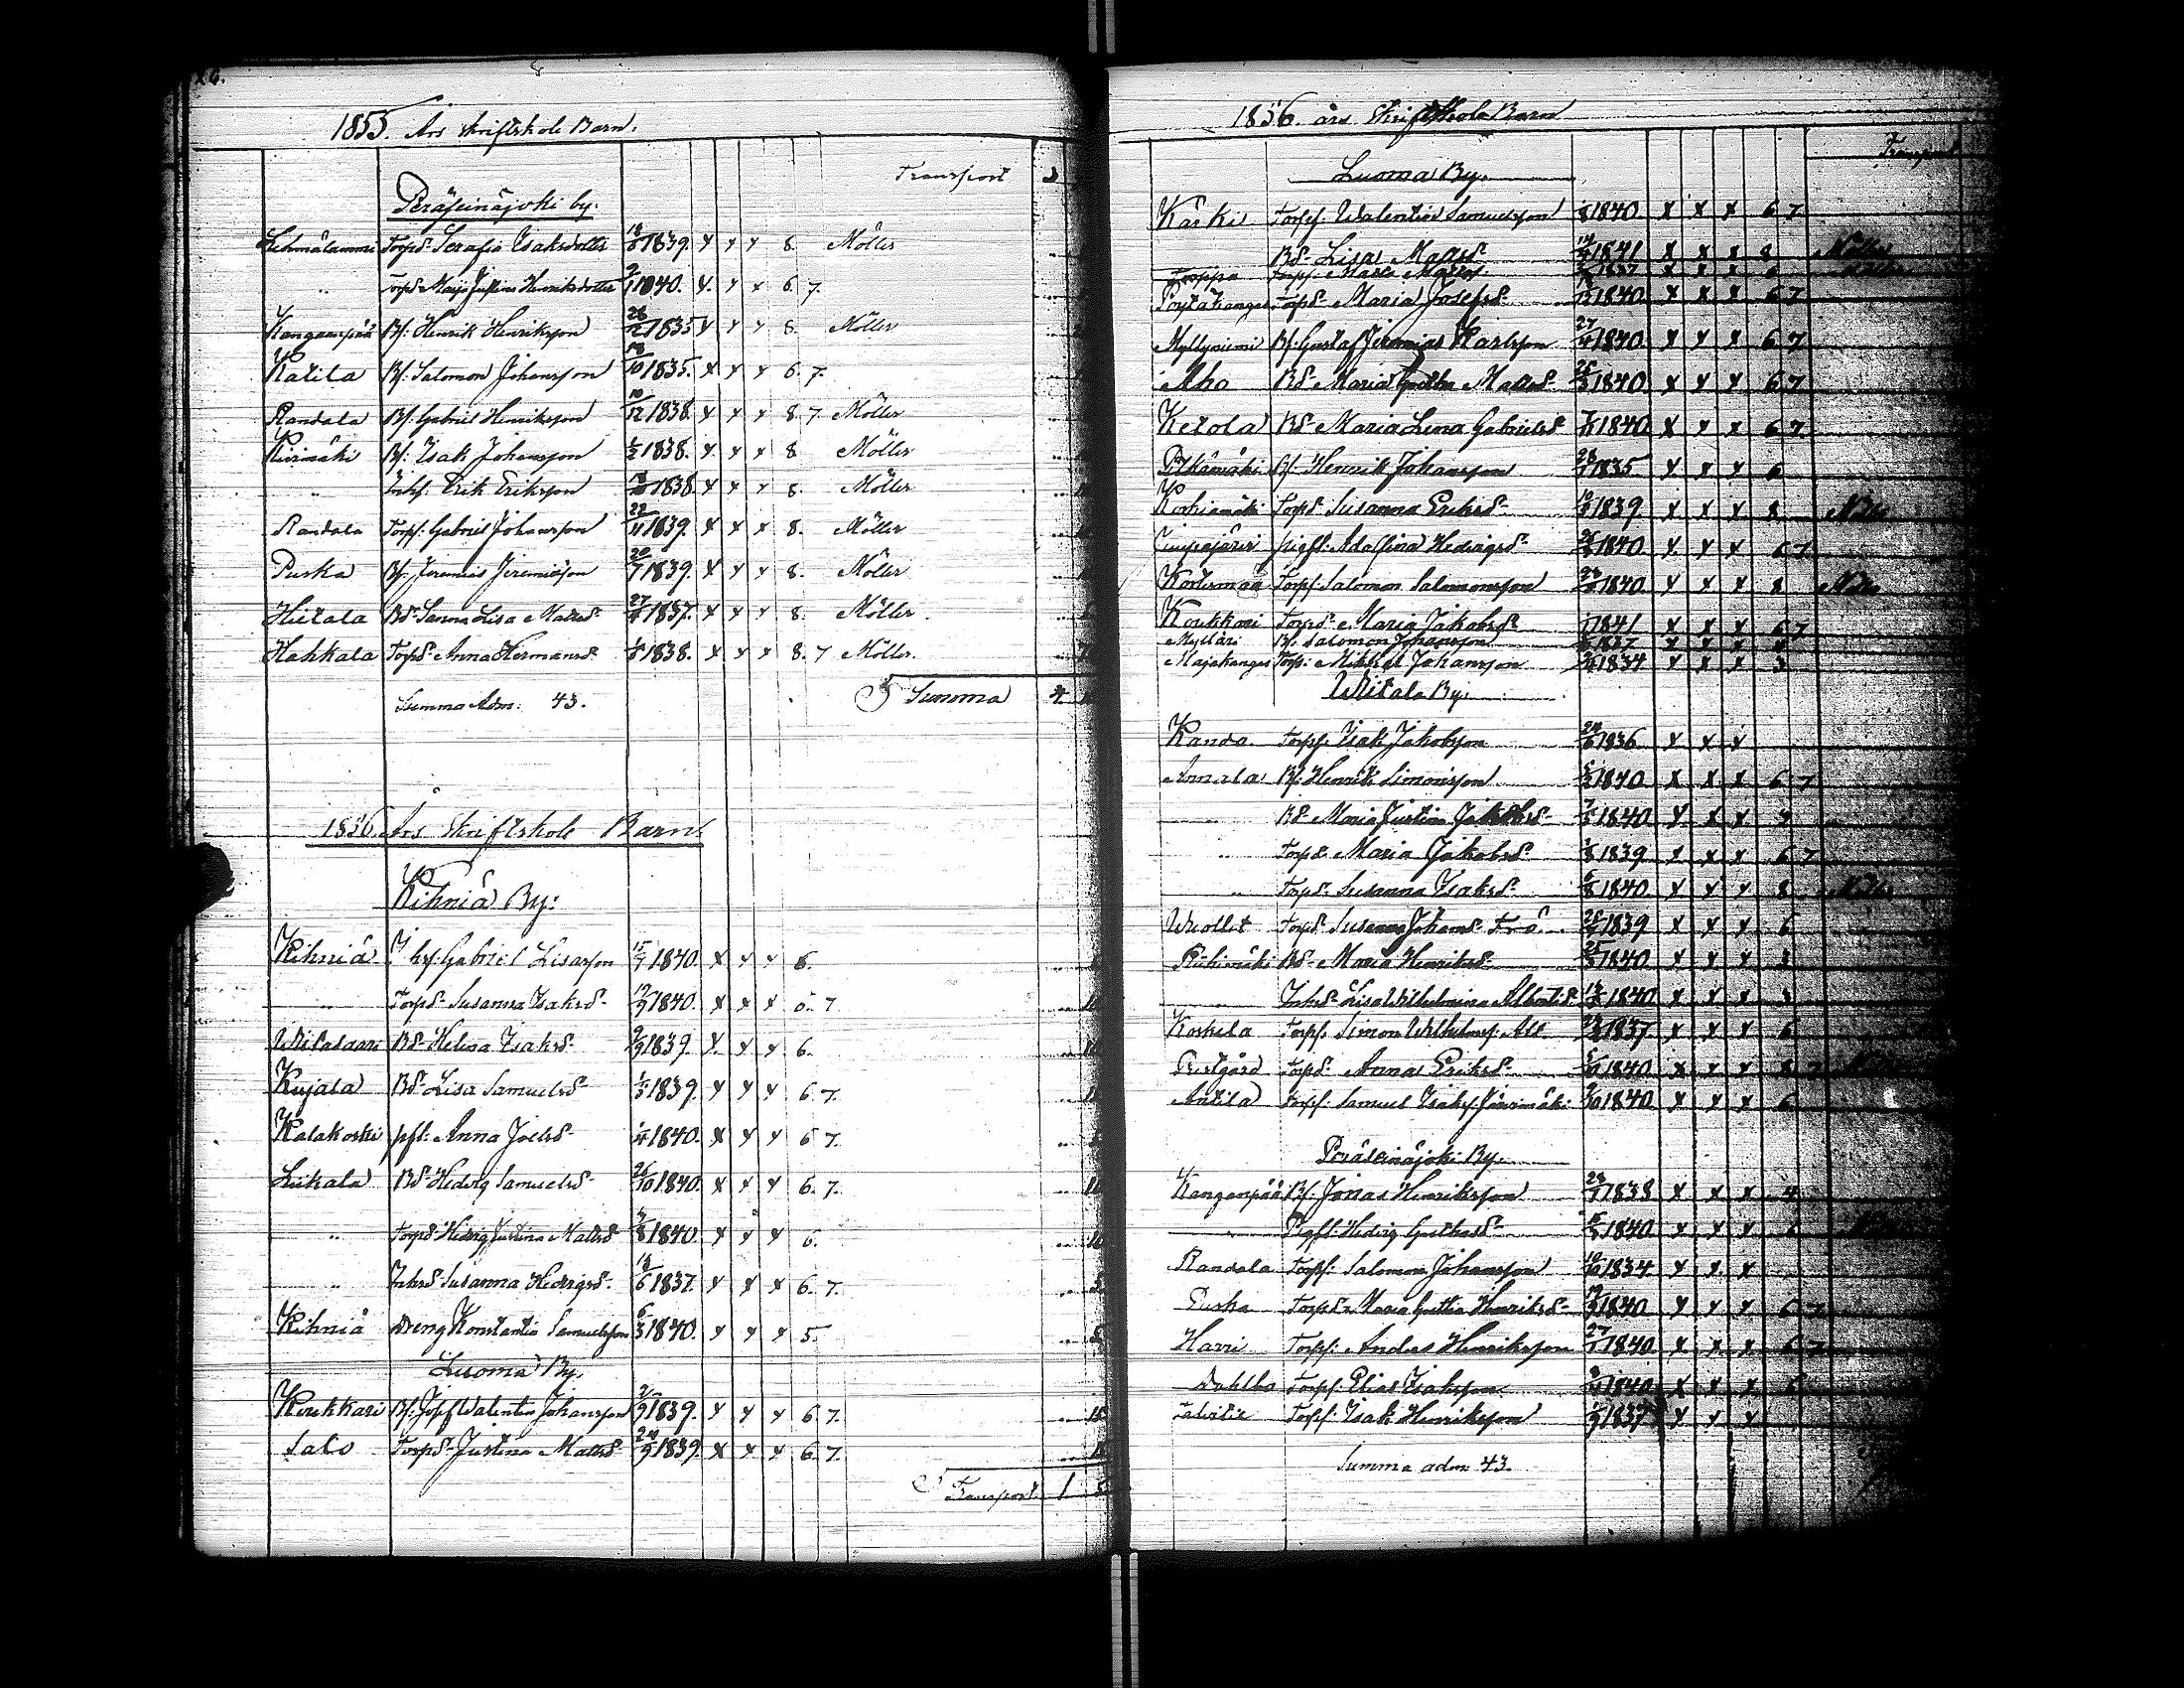 26.
1855. Års skriftskole Barn.
Transport 3
Peräseinäjoki by.
Lehmälammi Torpd. Serafia Isaksdotter 18/6 1839. x x x 8. Möller
" Torpd. Maja Justina Henriksdotter 9/1 1840. x x x 6. 7.
Kangaanpää Bs. Henrik Henriksson 28/12 1835 x x x 8. Möller
Katila Bs. Salomon Johansson 18/10 1835. x x x 6. 7.
Randala Bs. Gabriel Henriksson 10/12 1838. x x x 8. 7 Möller
Kivimäki Bs. Isak Johansson 1838. x x x 8 Möller
" Inhs. Erik Eriksson 1838 x x x 8. Möller
Randala Torps. Gabriel Johansson 22/11 1839. x x x 8. Möller
Puska Bs. Jeremias Jeremiasson 20/7 1839. x x x 8. Möller
Hietala Bd. Sanna Lisa Matsd. 27 1837. x x x 8. Möller
Hakkala Torpd. Anna Hermansd. 1838. x x x 8. 7 Möller.
Summa Adm: 43. Summa 4
1856 Års Skriftskole Barn.
Kihniä By:
Kihniä Ihs. Gabriel Lisasson 15/7 1840. x x x 6.
" Torpd. Susanna Isaksd. 19/9 1840. x x x 6. 7
Witalaari Bd. Helena Isaksd. 9/9 1839. x x x 6.
Kujala Bd. Lisa Samuelsd. 1/3 1839. x x x 6 7.
Kalakoski pfl. Anna Joelsd. 1/4 1840. x x x 6 7.
Liikala Bd. Hedvig Samuelsd. 26/10 1840. x x x 6. 7.
" Torpd. Hedvig Justina Matsd. 1840. x x x 6.
" Inhsd. Susanna Hedvigsd. 18/6 1837. x x x 6. 7.
Kihniä Dreng Konstantin Samuelsson 6/3 1840. x x x 5.
Luoma By.
Koukkari Bs. Josef Walentin Johansson 2/9 1839. x x x 6 7.
Salo Torpd. Justina Matsd. 24/9 1839. x x x 6. 7.
Transport 1.
1856. års SkriftSkola Barn
Transport
Luoma By.
Kärki Torps. Walentin Samuelsson 1840. x x x 6 7
Bd. Lisa Matsd. 14 1841 x x x 8 Möller
Torppa Torpd. Maria Matsd. 1837 x x x 6 Möller
Pöytäkangas Torpd. Maria Josefsd. 1840 x x x 6 7
Myllyniemi Bs. Gustaf Jeremias Karlsson 27/4 1840 x x x 6 7
Aho Bd. Maria Matsd. 25/3 1840. x x x 6 7
Ketola Bd. Maria Lena Gabrielsd 1840. x x x 6 7.
Pitkämäki Bs. Henrik Johansson 28/1 1835 x x x 6
Korhiamäki Torpd. Susanna Eriksd. 10 1839 x x x 8 Möller
pigfl. Adolfina Hedvigsd. 1840 x x x 6 7
Kortesmaa Torps. Salomon Salomonsson 23 1840 x x x 8 Möller
Koukkari Torpd. Maria Jakobsd. 1841 x x x 6 7
Mylläri Bs. Salomon Johansson 1837 x x x 4
Majakangas Torps. Mikkel Johansson 1834 x x x 3
Witala By.
Randa Torps. Isak Jakobsson 24/6 1836 x x x
Annala Bs. Henrik Simonsson 1840 x x x 6 7
Bd. Maria Justina Jakobsd. 1840 x x x 7
" Torpd. Maria Jakobsd. 1/8 1839 x x x 6 7
" Torpd. Susanna Isaksd. 6/8 1840. x x x 8 Möller
Wuollet Torpd. Susanna Johansd. 1839 x x x 6
Riihimäki Bd. Maria Henriksd. 25/3 1840. x x x 3
" Inhsd. Lisa Wilhelmina Albertsd. 1840 x x x 3
Koskela Torps. Simon Wilhelmss. 1837 x x x 6
Prestgård Torpd. Anna Eriksd. 1840 x x x 8 7
Antila Torps. Samuel Isakss. 9/10 1840 x x x 6
Peräseinäjoki By.
Kangaanpää Bs. Jonas Henriksson 28/1 1838 x x x 4
" Pigfl. Hedvig 1840. x x x 6
Randala Torps. Salomon Johansson 10/10 1834 x x x
Puska Torpd. Maria Henriksd. 1840. x x x 6 7
Harri Torps. Anders Henriksson 27/1 1840. x x x 6 7
Dahlbo Torps. Elias Isaksson 1840 x x x 6
Torps. Isak Henriksson 1837 x x x
Summa adm 43.